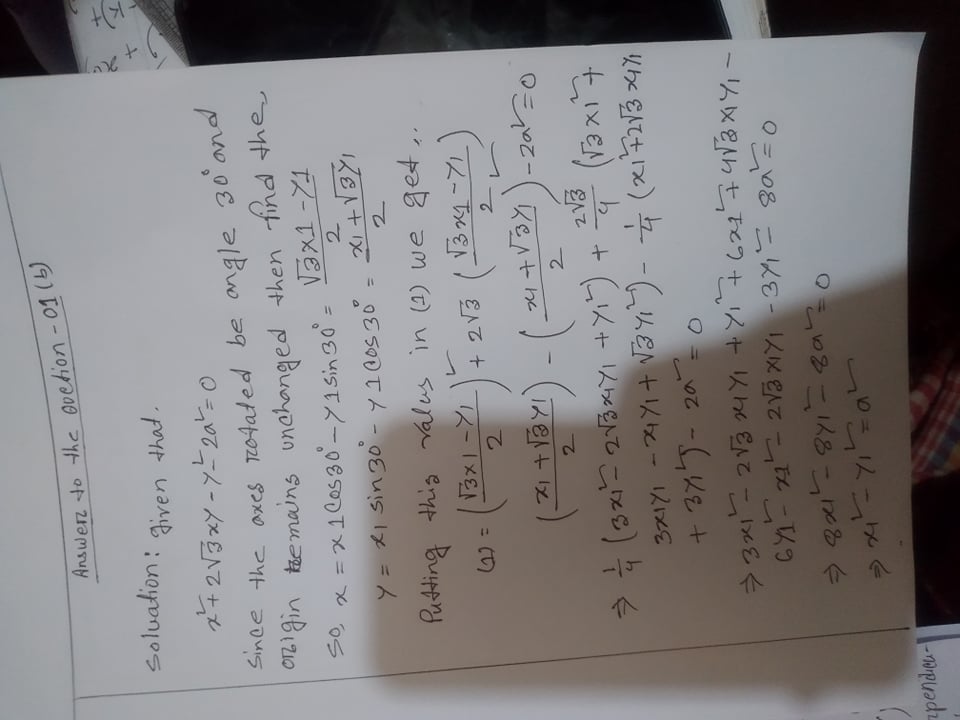 Answer to the Question - 01 (b)
Soluation: given that.
x² + 2√3 xy - y² - 2a² = 0
since the axes rotated be angle 30° and
origin remains unchanged then find the,
So, x = x1 Cos30° - y1 sin30° = (√3x1 - y1)/2
y = x1 sin30° - y1 Cos30° = (x1 + √3y1)/2
Putting this valus in (1) we get..
(1) = ((√3x1 - y1)/2)² + 2√3 ((√3x1 - y1)/2)
((x1 + √3y1)/2) - ((x1 + √3y1)/2)² - 2a² = 0
⇒ 1/4 (3x1² - 2√3 x1y1 + y1²) + 2√3/4 (√3 x1² +
3x1y1 - x1y1 + √3y1²) - 1/4 (x1² + 2√3 x1y1
+ 3y1²) - 2a² = 0
⇒ 3x1² - 2√3 x1y1 + y1² + 6x1² + 4√3 x1y1 -
6y1² - x1² - 2√3 x1y1 - 3y1² - 8a² = 0
⇒ 8x1² - 8y1² - 8a² = 0
⇒ x1² - y1² = a²